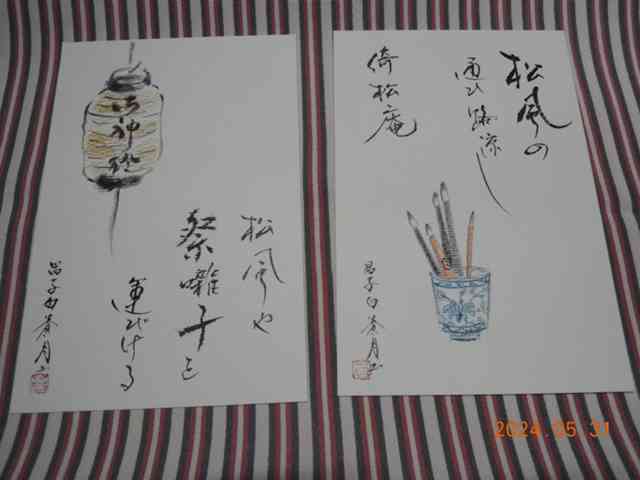 松風の
通ひ路涼し
倚松庵
昌子句 春月
御神燈
松風や
祭囃子を
運びける
昌子句 春月
2024.05.31